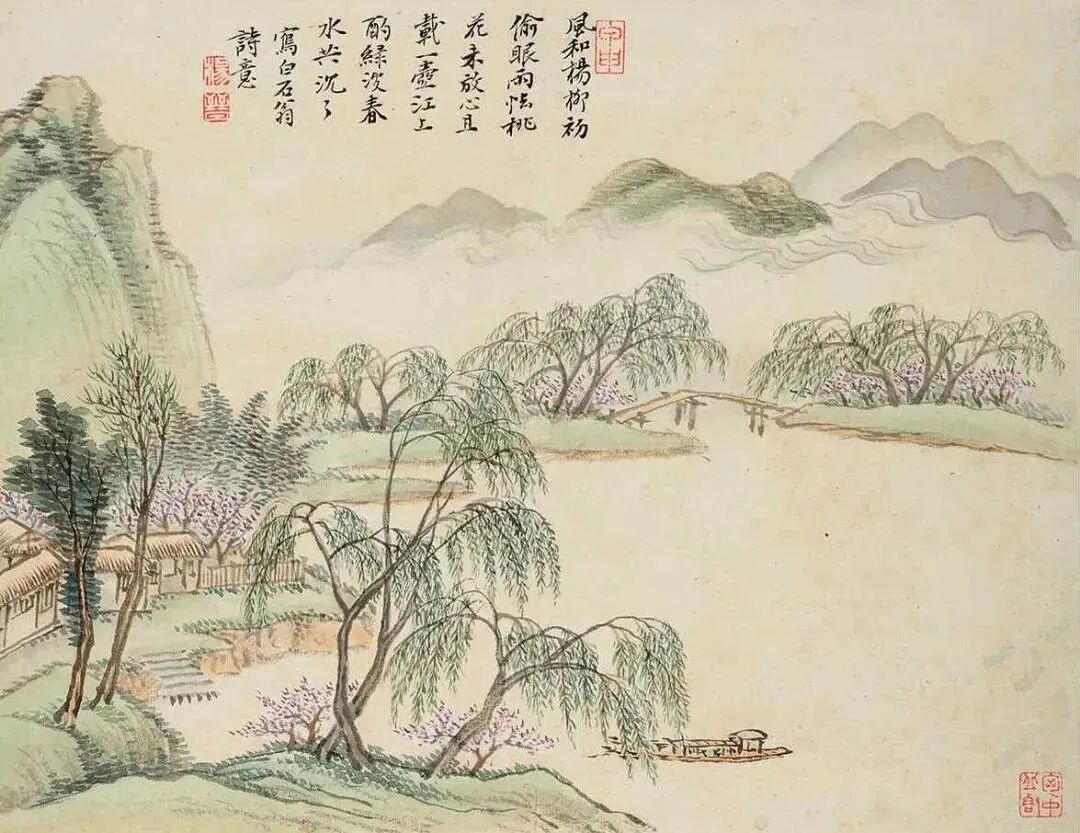 風和楊柳初
偷眼雨怯桃
花未放心且
載一壺江上
酌綠波春
水共沉々
寫白石翁
詩意
楊
晉